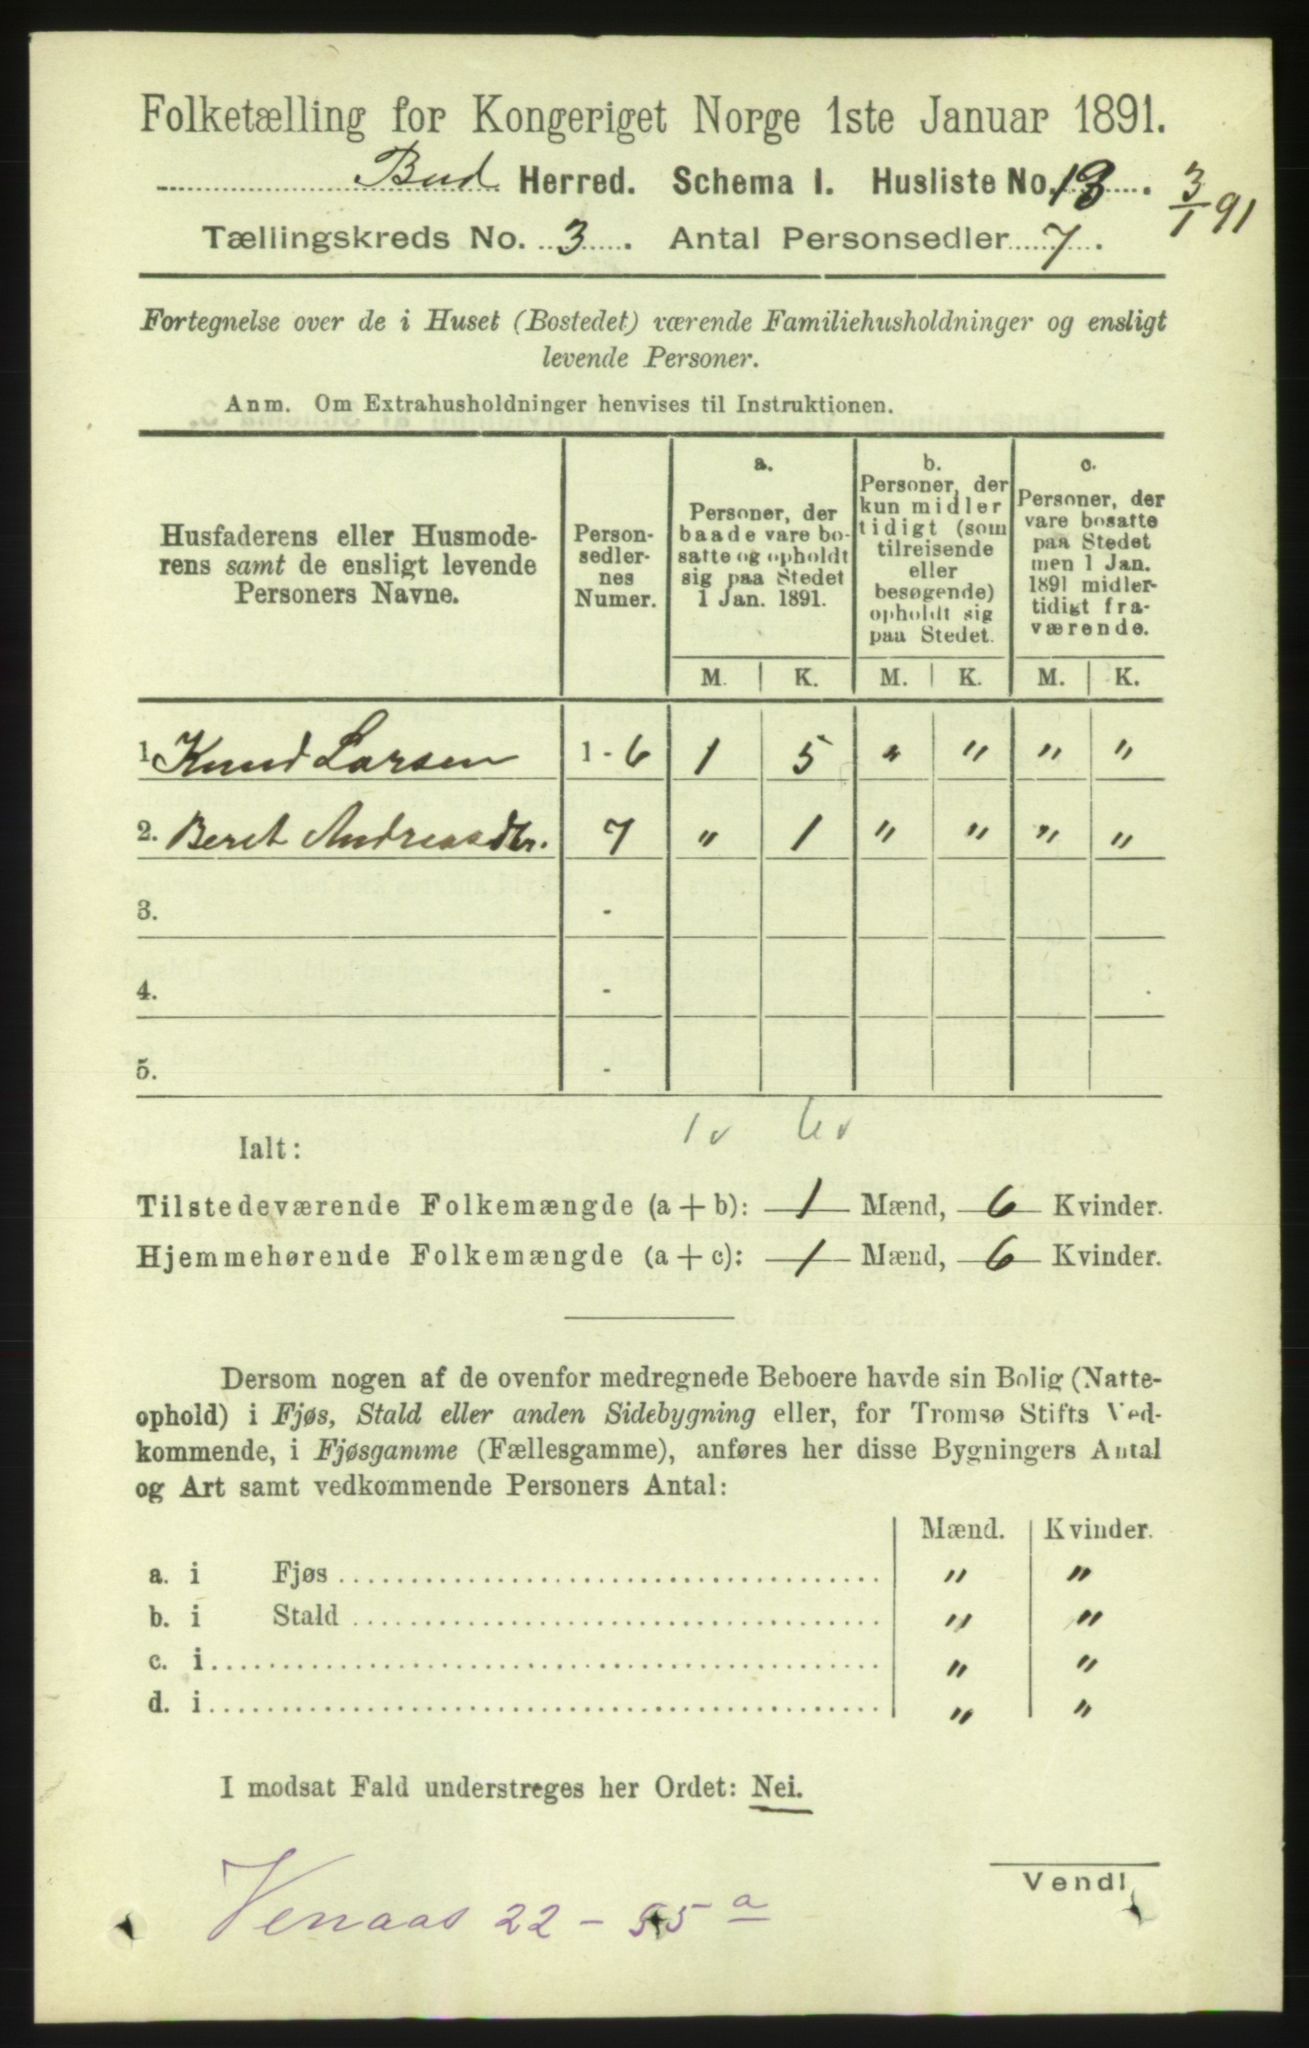 Folketælling for Kongeriget Norge 1ste Januar 1891.
Bud Herred. Schema I. Husliste No. 13. 3/1 91
Tællingskreds No. 3. Antal Personsedler 7.
Fortegnelse over de i Huset (Bostedet) værende Familiehusholdninger og ensligt
levende Personer.
Anm. Om Extrahusholdninger henvises til Instruktionen.
Husfaderens eller Husmode-
rens samt de ensligt levende
Personers Navne.
Person-
sedler-
nes
Numer.
a.
Personer, der
baade vare bo-
satte og opholdt
sig paa Stedet
1 Jan. 1891.
b.
Personer, der
kun midler
tidigt (som
tilreisende
eller
besøgende)
opholdt sig
paa Stedet.
c.
Personer, der
vare bosatte
paa Stedet
men 1 Jan.
1891 midler-
tidigt fra-
værende.
M. K. M. K. M. K.
1. Knud Larsen 1 - 6 1 5 " " " "
2. Beret Andreasdtr. 7 " 1 " " " "
3. -
4. -
5. -
1 v 6 v
Ialt:
Tilstedeværende Folkemængde (a + b): 1 Mænd, 6 Kvinder.
Hjemmehørende Folkemængde (a + c): 1 Mænd, 6 Kvinder.
Dersom nogen af de ovenfor medregnede Beboere havde sin Bolig (Natte-
ophold) i Fjøs, Stald eller anden Sidebygning eller, for Tromsø Stifts Ved-
kommende, i Fjøsgamme (Fællesgamme), anføres her disse Bygningers Antal
og Art samt vedkommende Personers Antal:
Mænd. Kvinder.
a. i Fjøs " "
b. i Stald " "
c. i " "
d. i " "
I modsat Fald understreges her Ordet: Nei.
Vendl
Venaas 22 - 55 a